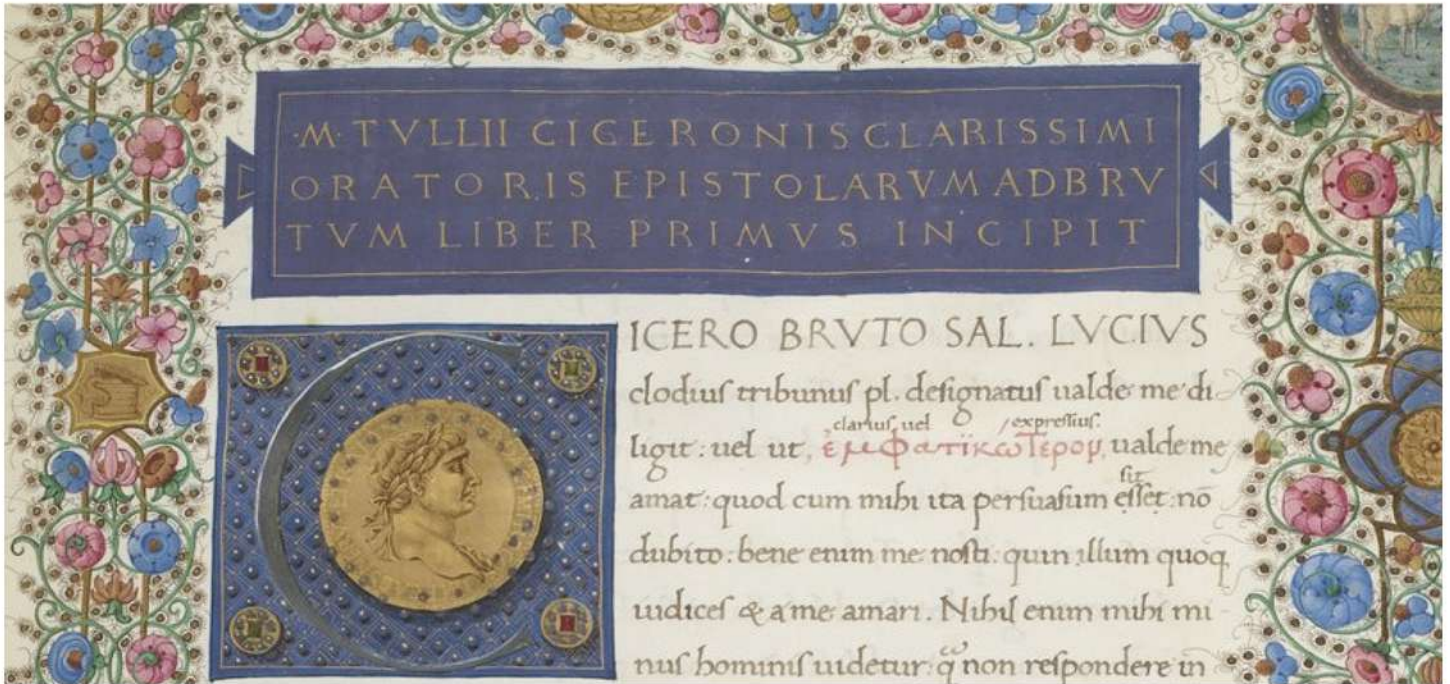 ·M· TVLLII CICERONIS CLARISSIMI
ORATORIS EPISTOLARVM AD BRV
TVM LIBER PRIMVS INCIPIT
CICERO BRVTO SAL. LVCIVS
clodius tribunus pl. designatus ualde me di-
clarius uel expressius.
ligit: uel ut, ἐμφατϊκώτερον, ualde me
sit
amat: quod cum mihi ita persuasum esset: nō
dubito: bene enim me nosti: quin illum quoq
iudices & a me amari. Nihil enim mihi mi-
nus hominis uidetur: q̃ non respondere in